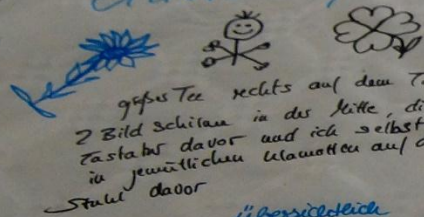 großes Tee rechts auf dem T
2 Bildschirme in der Mitte, di
Tastatur davor und ich selbst
in gemütlichen Klamotten auf d
Stuhl davor
übersichtlich